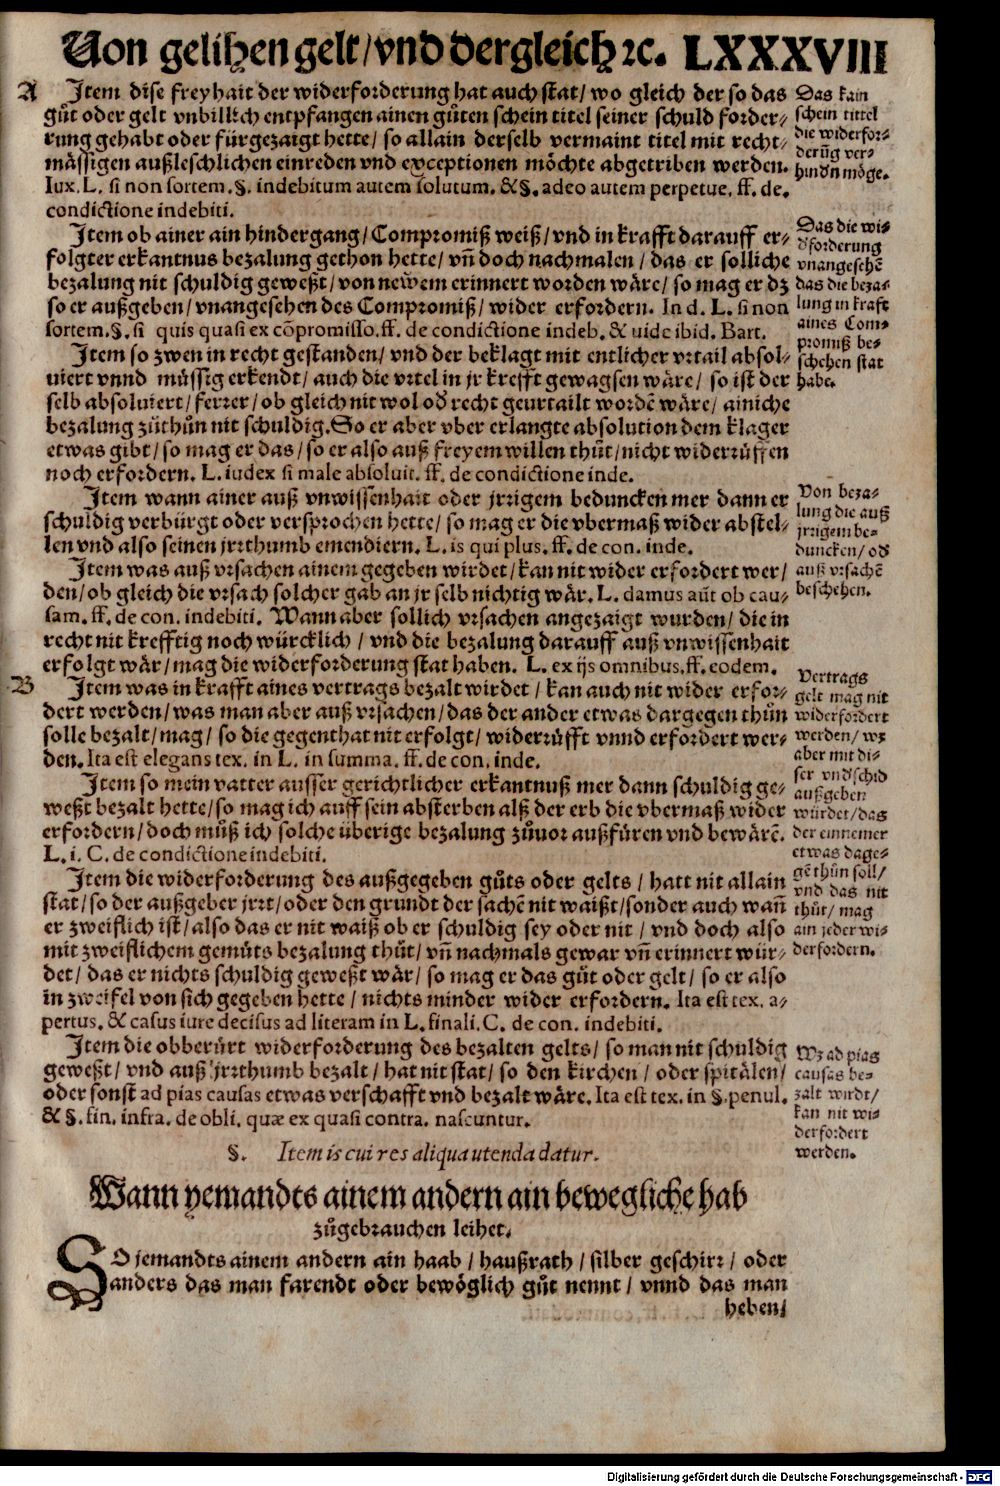 Von gelihen gelt/vnd dergleich ꝛc. LXXXVIII
A
Item dise freyhait der widerforderung hat auch stat/ wo gleich der so das
gůt oder gelt vnbillich entpfangen ainen gůten schein titel seiner schuld forder-
rung gehabt oder fürgezaigt hette/ so allain derselb vermaint titel mit recht-
mässigen außleschlichen einreden vnd exceptionen möchte abgetriben werden.
Iux. L. si non sortem. §. indebitum autem solutum. & §. adeo autem perpetue. ff. de.
condictione indebiti.
Das kain
schein tittel
die widerfor-
derũg ver-
hindn möge.
Item ob ainer ain hindergang/ Compromiß weiß/ vnd in krafft darauff er-
folgter erkantnus bezalung gethon hette/ vñ doch nachmalen/ das er solliche
bezalung nit schuldig geweßt/ von newem erinnert worden wäre/ so mag er dz
so er außgeben/ vnangesehen des Compromiß/ wider erfordern. In d. L. si non
sortem. §. si quis quasi ex cõpromisso. ff. de condictione indeb. & uide ibid. Bart.
Das die wi-
dforderung
vnangesehẽ
das die beza-
lung in kraft
aines Com-
promiß be-
schehen stat
habe.
Item so zwen in recht gestanden/ vnd der beklagt mit entlicher vrtail absol-
uiert vnnd müssig erkendt/ auch die vrtel in jr krefft gewagsen wäre/ so ist der
selb absoluiert/ ferrer/ ob gleich nit wol od recht geurtailt wordẽ wäre/ ainiche
bezalung zůthůn nit schuldig. So er aber vber erlangte absolution dem klager
etwas gibt/ so mag er das/ so er also auß freyem willen thůt/ nicht widerrůffen
noch erfordern. L. iudex si male absoluit. ff. de condictione inde.
Item wann ainer auß vnwissenhait oder jrrigem beduncken mer dann er
schuldig verbürgt oder versprochen hette/ so mag er die vbermaß wider abstel-
len vnd also seinen jrrthumb emendiern. L. is qui plus. ff. de con. inde.
Von beza-
lung die auß
jrrigem be-
duncken/ od
auß vrsachẽ
beschehen.
Item was auß vrsachen ainem gegeben wirdet/ kan nit wider erfordert wer/
den/ ob gleich die vrsach solcher gab an jr selb nichtig wär. L. damus aũt ob cau-
sam. ff. de con. indebiti. Wann aber sollich vrsachen angezaigt wurden/ die in
recht nit krefftig noch würcklich/ vnd die bezalung darauff auß vnwissenhait
erfolgt wär/ mag die widerforderung stat haben. L. ex ijs omnibus. ff. eodem.
B
Item was in krafft aines vertrags bezalt wirdet/ kan auch nit wider erfor-
dert werden/ was man aber auß vrsachen/ das der ander etwas dargegen thůn
solle bezalt/ mag/ so die gegenthat nit erfolgt/ widerrůfft vnnd erfordert wer-
den. Ita est elegans tex. in L. in summa. ff. de con. inde.
Vertrags
gelt mag nit
widerfordert
werden/ wz
aber mit di-
ser vndschid
außgeben
würdet/ das
der einnemer
etwas dage-
gẽ thůn soll/
vnd das nit
thůt/ mag
ain jeder wi-
derfordern.
Item so mein vatter ausser gerichtlicher erkantnuß mer dann schuldig ge-
weßt bezalt hette/ so mag ich auff sein absterben alß der erb die vbermaß wider
erfordern/ doch můß ich solche überige bezalung zůuor außfüren vnd bewärẽ.
L. i. C. de condictione indebiti.
Item die widerforderung des außgegeben gůts oder gelts/ hatt nit allain
stat/ so der außgeber jrrt/ oder den grundt der sachẽ nit waißt/ sonder auch wañ
er zweiflich ist/ also das er nit waiß ob er schuldig sey oder nit/ vnd doch also
mit zweiflichem gemüts bezalung thůt/ vñ nachmals gewar vñ erinnert wür-
det/ das er nichts schuldig geweßt wär/ so mag er das gůt oder gelt/ so er also
in zweifel von sich gegeben hette/ nichts minder wider erfordern. Ita est tex. a-
pertus. & casus iure decisus ad literam in L. finali. C. de con. indebiti.
Item die obberürt widerforderung des bezalten gelts/ so man nit schuldig
geweßt/ vnd auß jrrthumb bezalt/ hat nit stat/ so den kirchen/ oder spitälen/
oder sonst ad pias causas etwas verschafft vnd bezalt wäre. Ita est tex. in §. penul.
& §. fin. infra. de obli. quæ ex quasi contra. nascuntur.
Wz ad pias
causas be-
zalt wirdt/
kan nit wi-
derfordert
werden.
§. Item is cui res aliqua utenda datur.
Wann yemandts ainem andern ain bewegliche hab
zůgebrauchen leihet.
SO jemandts ainem andern ain haab/ haußrath/ silber geschirr/ oder
anders das man farendt oder bewöglich gůt nennt/ vnnd das man
heben/
Digitalisierung gefördert durch die Deutsche Forschungsgemeinschaft - DFG